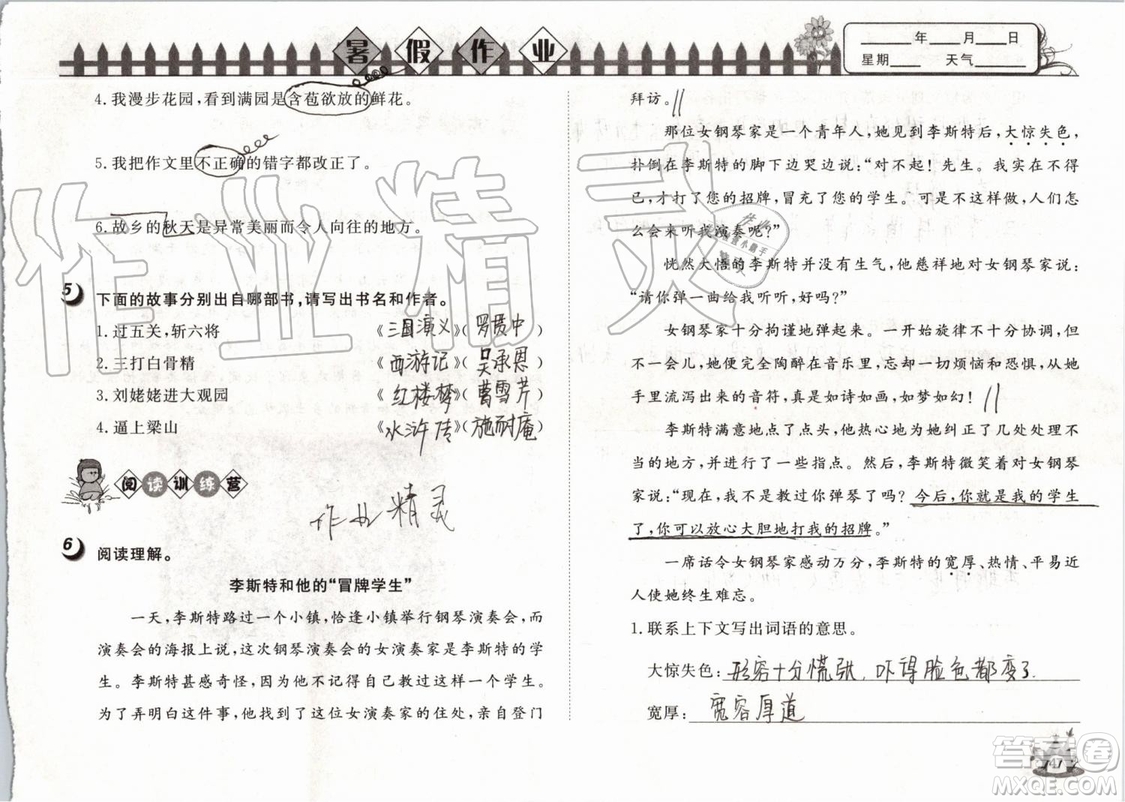 暑假作业
____年____月____日
星期____ 天气____
4.我漫步花园,看到满园是含苞欲放的鲜花。
5.我把作文里不正确的错字都改正了。
6.故乡的秋天是异常美丽而令人向往的地方。
5 下面的故事分别出自哪部书,请写出书名和作者。
1.过五关,斩六将 《三国演义》(罗贯中)
2.三打白骨精 《西游记》(吴承恩)
3.刘姥姥进大观园 《红楼梦》(曹雪芹)
4.逼上梁山 《水浒传》(施耐庵)
阅读训练营
作业精灵
6 阅读理解。
李斯特和他的“冒牌学生”
一天,李斯特路过一个小镇,恰逢小镇举行钢琴演奏会,在
演奏会的海报上说,这次钢琴演奏会的女演奏家是李斯特的学
生。李斯特甚感奇怪,他不记得自己曾经有过这样一个学生。
为了弄明白这件事,他找到了这位女演奏家的住处,亲自登门
拜访。
那位女钢琴家是一个青年人,她见到李斯特,大惊失色,
扑倒在李斯特的脚下边哭边说:“对不起!先生。我实在不得
已,才打了您的招牌,冒充了您的学生。我若不是这样做,人们
怎么会来听我演奏呢?”
恍然大悟的李斯特并没有生气,他慈祥地对女钢琴家说:
“请你弹一曲给我听听,好吗?”
女钢琴家十分拘谨地弹起来。一开始旋律不十分协调,但
很快地,她便完全陶醉在音乐里,忘却了一切烦恼和恐惧,从她
手里流泻出来的音符,真是如诗如画,如梦如幻!
李斯特满意地点了点头,他毫无保留地纠正了几处处理不
当的地方,然后又进行了一些指点。然后李斯特微笑着对女钢琴
家说:“现在,我不是已经教过你弹琴了吗?今后,你就是我的学生
了,你可以放心大胆地打我的招牌。”
一席话令女钢琴家感动万分,李斯特的宽厚、热情、平易近
人使她终生难忘。
1.联系上下文写出词语的意思。
大惊失色:形容十分慌张,吓得脸色都变了
宽厚:宽容厚道
41
作业精灵
答案圈
MXQE.COM